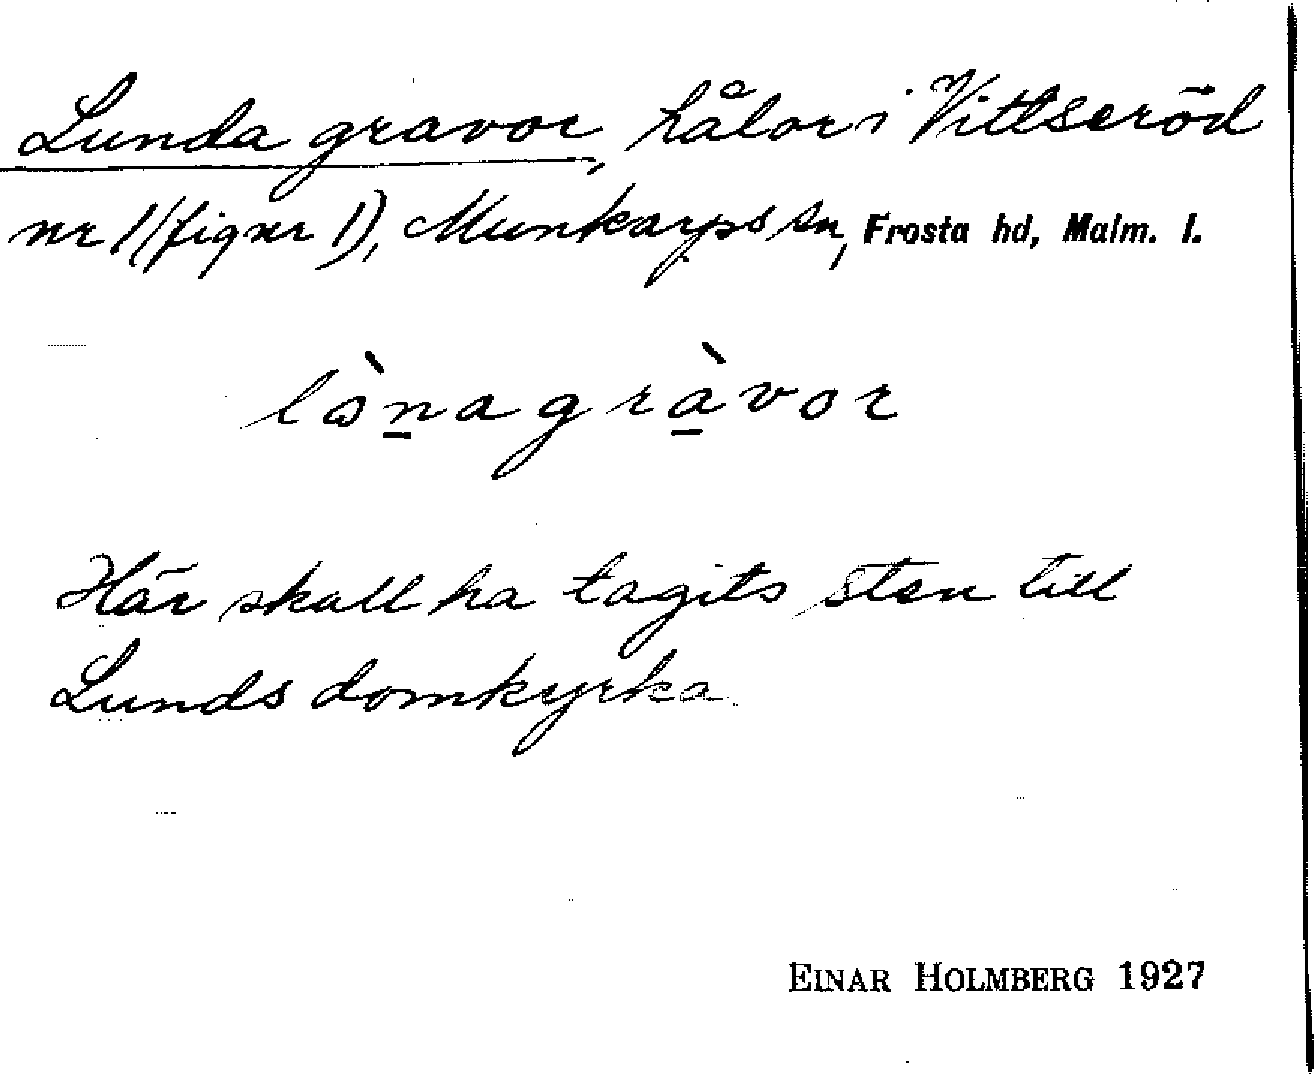 Lunda gravor, hålor i Vittseröd
nr 1 (fig nr 1), Munkarps sn, Frosta hd, Malm. l.
lò̱nagrà̱vor
Här skall ha tagits sten till
Lunds domkyrka.
EINAR HOLMBERG 1927